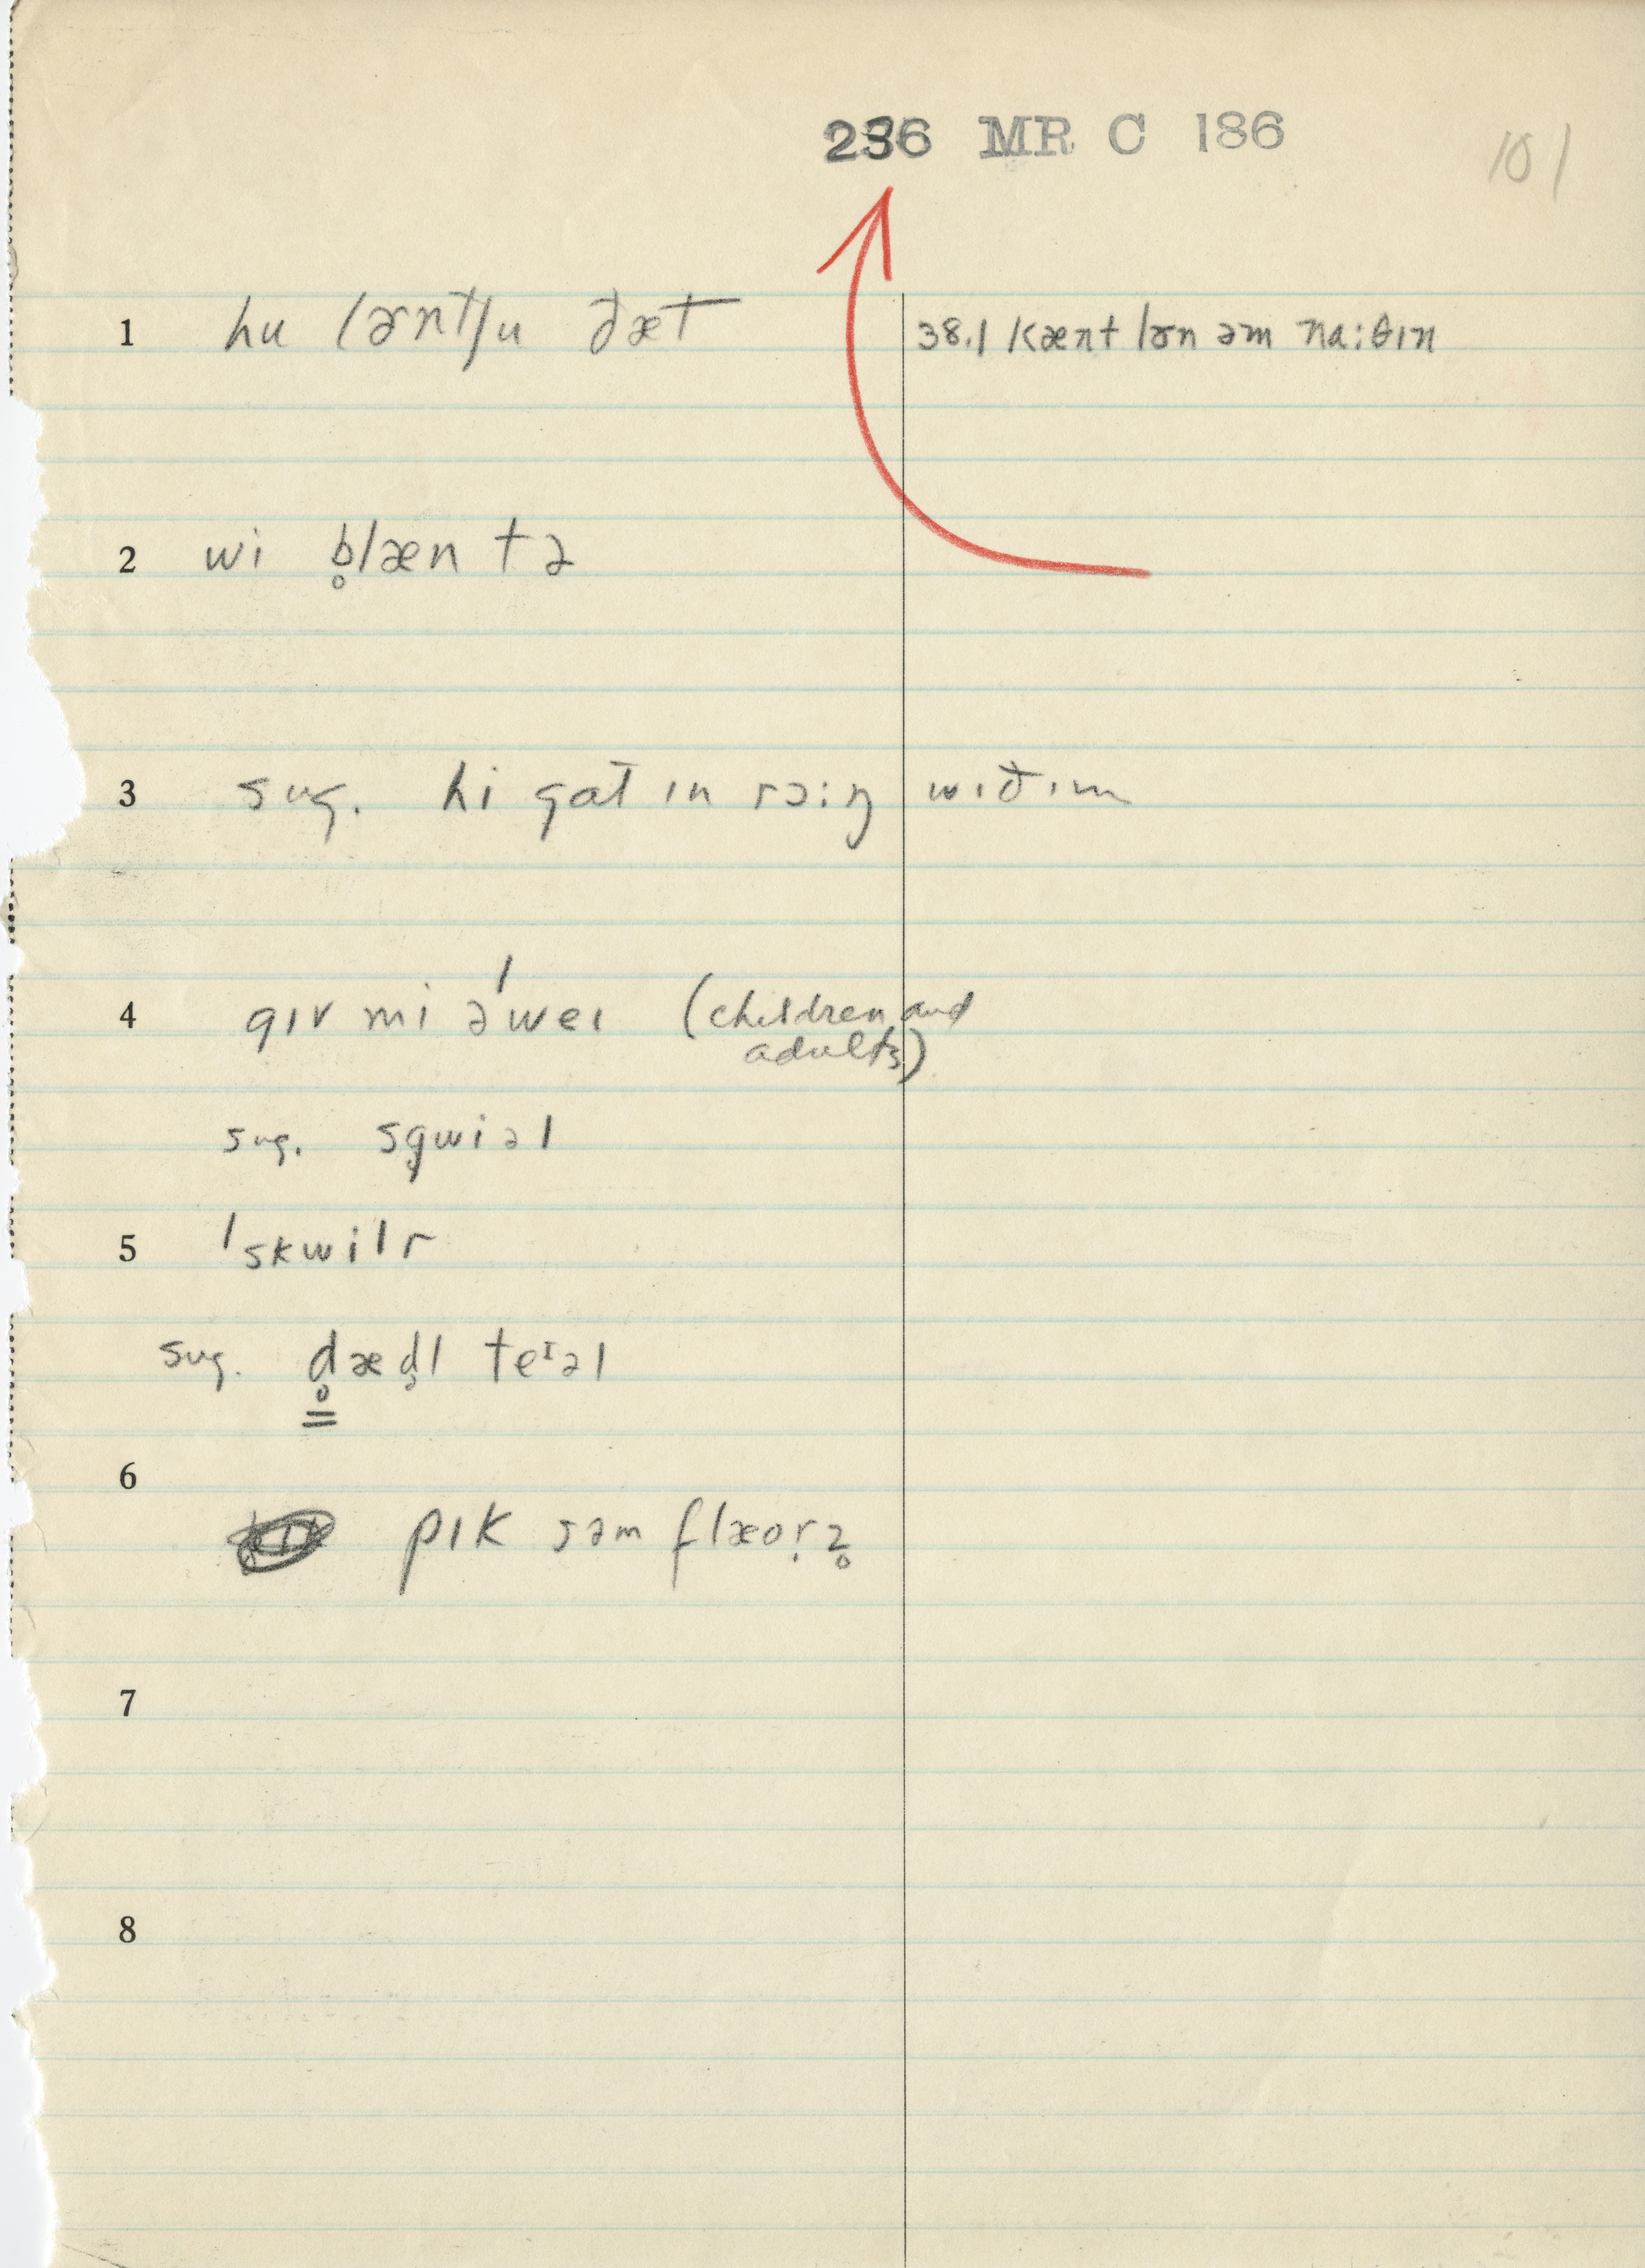 236 MR C 186
101
1 hu lɚntʃu ðæt 38.1 kænt lɚn əm na:θɪn
2 wi b̥læn tə
3 sug. hi gat ɪn rɔ:ŋ wɪðɪm
4 gɪv mi ə'weɪ (children and
adults)
sug. sg̥wiəl
5 'skwilr
sug. d̥æd̥l teᶦəl
6
pɪk səm flæoṛz̥
7
8